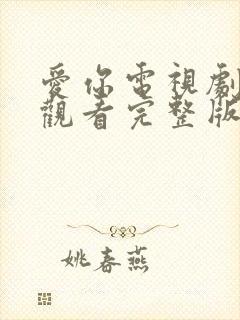 愛你電視劇
觀看完整版
姚春燕